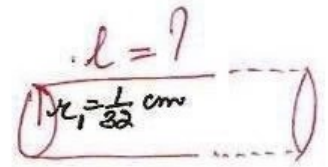 l = ?
r₁ = 1/32 cm